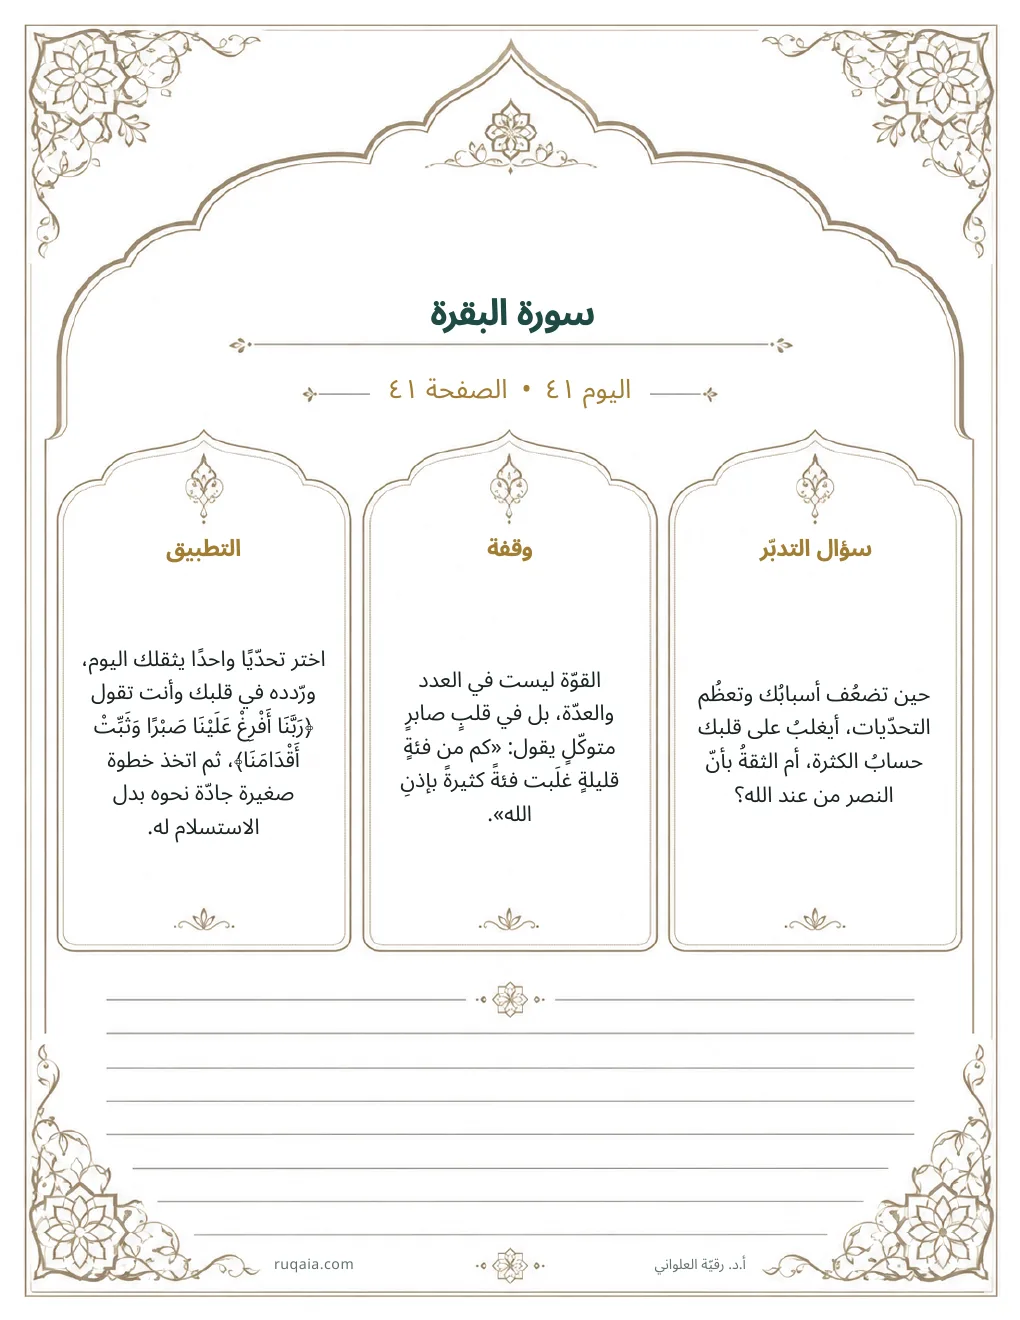 سورة البقرة
اليوم ٤١ • الصفحة ٤١
سؤال التدبّر
حين تضعُف أسبابُك وتعظُم
التحدّيات، أيغلبُ على قلبك
حسابُ الكثرة، أم الثقةُ بأنّ
النصر من عند الله؟
وقفة
القوّة ليست في العدد
والعدّة، بل في قلبٍ صابرٍ
متوكّلٍ يقول: «كم من فئةٍ
قليلةٍ غلَبت فئةً كثيرةً بإذنِ
الله».
التطبيق
اختر تحدّيًا واحدًا يثقلك اليوم،
ورّدده في قلبك وأنت تقول
﴿رَبَّنَا أَفْرِغْ عَلَيْنَا صَبْرًا وَثَبِّتْ
أَقْدَامَنَا﴾، ثم اتخذ خطوة
صغيرة جادّة نحوه بدل
الاستسلام له.
أ.د. رقيّة العلواني
ruqaia.com